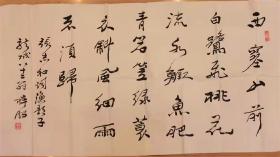 西塞山前
白鷺飛桃花
流水鱖魚肥
青箬笠綠蓑
衣斜風細雨
不須歸
張志和詞漁歌子
龍城